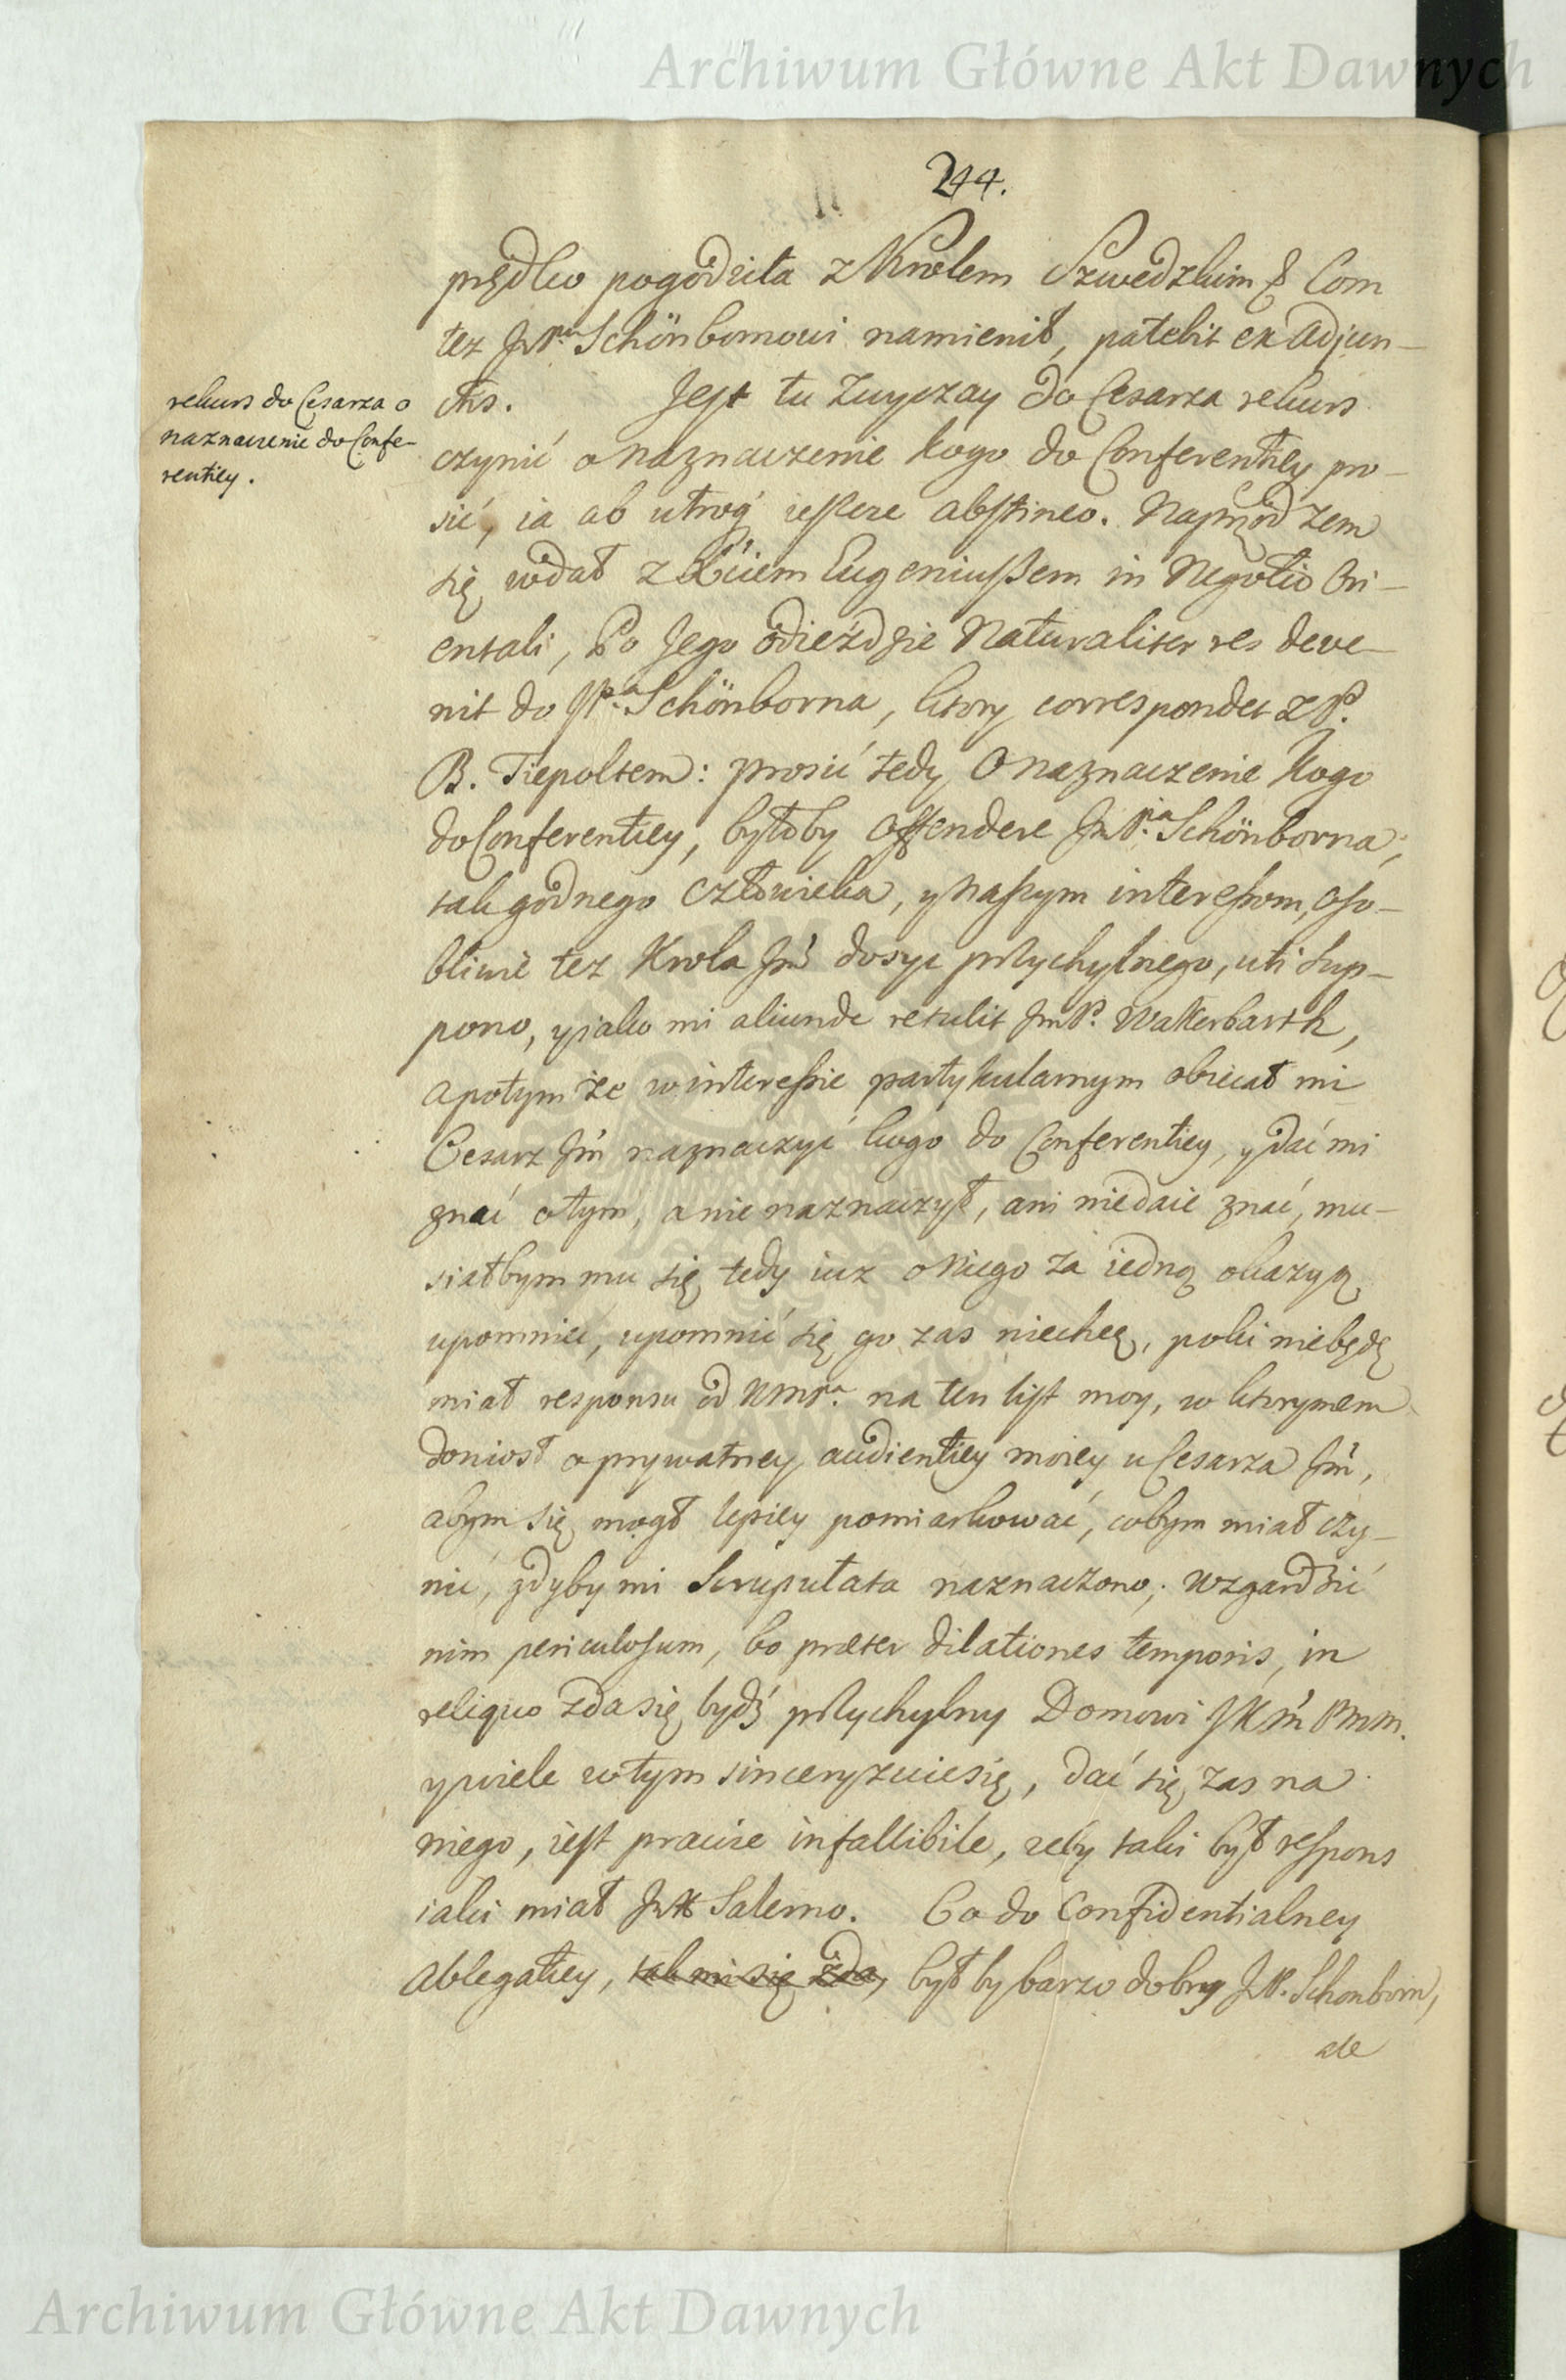 Archiwum Główne Akt Dawnych
244.
prędko pogodziła z Krolem Szwedzkim & Com
tez JmPu Schönbornowi namienił, patebit ex Adjun-
ctis. Jest tu Zwyczay do Cesarza rekurs
rekurs do Cesarza o
naznaczenie do Confe-
rentiey.
czynić o naznaczenie kogo do Conferentiey pro-
sić, ia ab utroq ieszcze abstineo. Naprzod zem
się wdał z Xciem Eugeniuszem in Negotio Ori-
entali, Po Jego odieździe Naturaliter res deve-
nit do JPa Schönborna, ktory correspondet z P.
B. Tiepoltem: prosić tedy o naznaczenie kogo
do Conferentiey, byłoby offendere JmPna Schönborna,
tak godnego człowieka, y naszym interessom, oso-
bliwie tez Krola Jmci dosyc przychylnego, uti sup-
pono, y iako mi aliunde retulit JmP. Wakerbarth,
a potym że w interessie partykularnym obiecał mi
Cesarz Jmć naznaczyć kogo do Conferentiey, y dać mi
znać o tym, a nie naznaczył, ani niedaie znać, mu-
siałbym mu się tedy iuz o niego za iedną okazyą
upomnieć, upomnić się go zas niechcę, poki niebędę
miał responsu od WmPa. na ten list moy, w ktorymem
doniosł o prywatney audientiey moiey u Cesarza Jmci,
abym się mogł lepiey pomiarkować, cobym miał czy-
nić, gdyby mi Scrupulata naznaczono; wzgardzić
nim periculosum, bo præter dilationes temporis, in
reliquo zda się bydź przychylny Domowi JKMci PMM.
y wiele w tym sinceryzuie się, dać się zas na
niego, iest prawie infallibile, zeby taki był respons
iaki miał JmX Salerno. Co do Confidentialney
Ablegatiey, tak mi się zda, był by barzo dobry JmP. Schonborn,
ale
Archiwum Główne Akt Dawnych